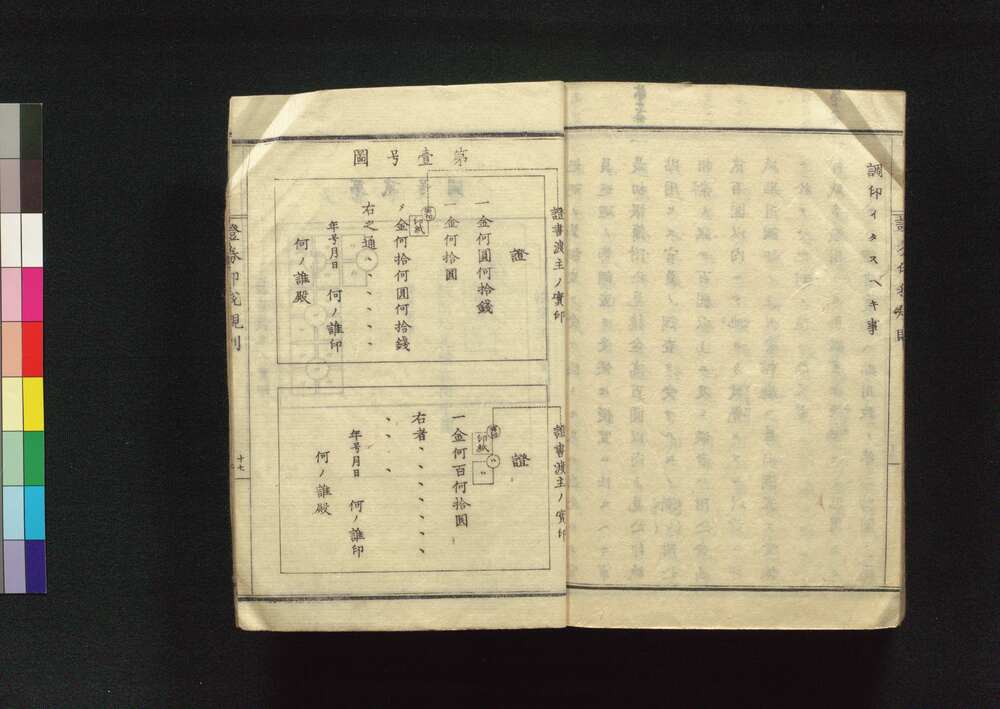 調印イタスヘキ事
第壹号圖
證書渡主ノ實印
證
一金何圓何拾錢
一金何拾圓
印紙
〆金何拾何圓何拾錢
右之通〃、、、、
年号月日　何ノ誰印
何ノ誰殿
證書渡主ノ實印
證
一金何百何拾圓
印紙
右者、、、、、、
、、、
年号月日　何ノ誰印
何ノ誰殿
證券印税規則
十七